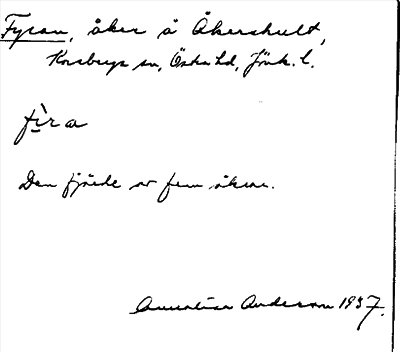 Fyran, åker å Åkershult,
Korsberga sn, Östra hd, Jönk. l.
fìra
Den fjärde av fem åkrar.
Anderson 1937.